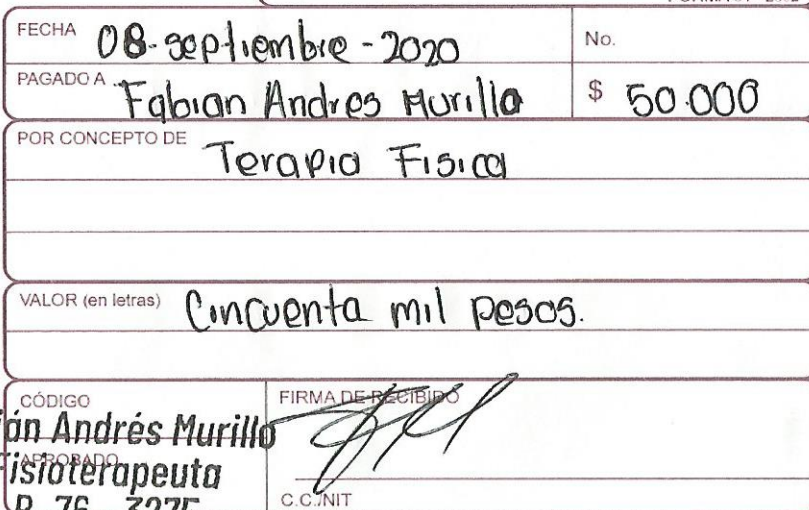 FECHA 08-septiembre-2020 No.
PAGADO A Fabian Andres Murillo $ 50.000
POR CONCEPTO DE Terapia Fisica
VALOR (en letras) Cincuenta mil pesos.
CÓDIGO FIRMA DE RECIBIDO
Andrés Murillo
APROBADO
Fisioterapeuta
C.C./NIT